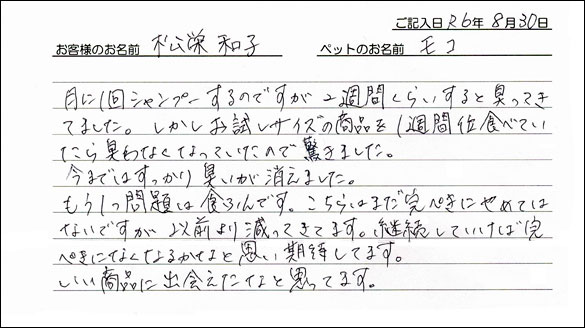 ご記入日 R6年 8月30日
お客様のお名前 松栄 和子 ペットのお名前 モコ
月に1回シャンプーするのですが2週間くらいすると臭ってき
てました。しかしお試しサイズの商品を1週間位食べてい
たら臭わなくなっていたので驚きました。
今ではすっかり臭いが消えました。
もう1つ問題は食ふんです。こちらはまだ完ぺきにやめては
ないですが以前より減ってきてます。継続していけば完
ぺきになくなるかなと思い期待してます。
いい商品に出会えたなと思ってます。